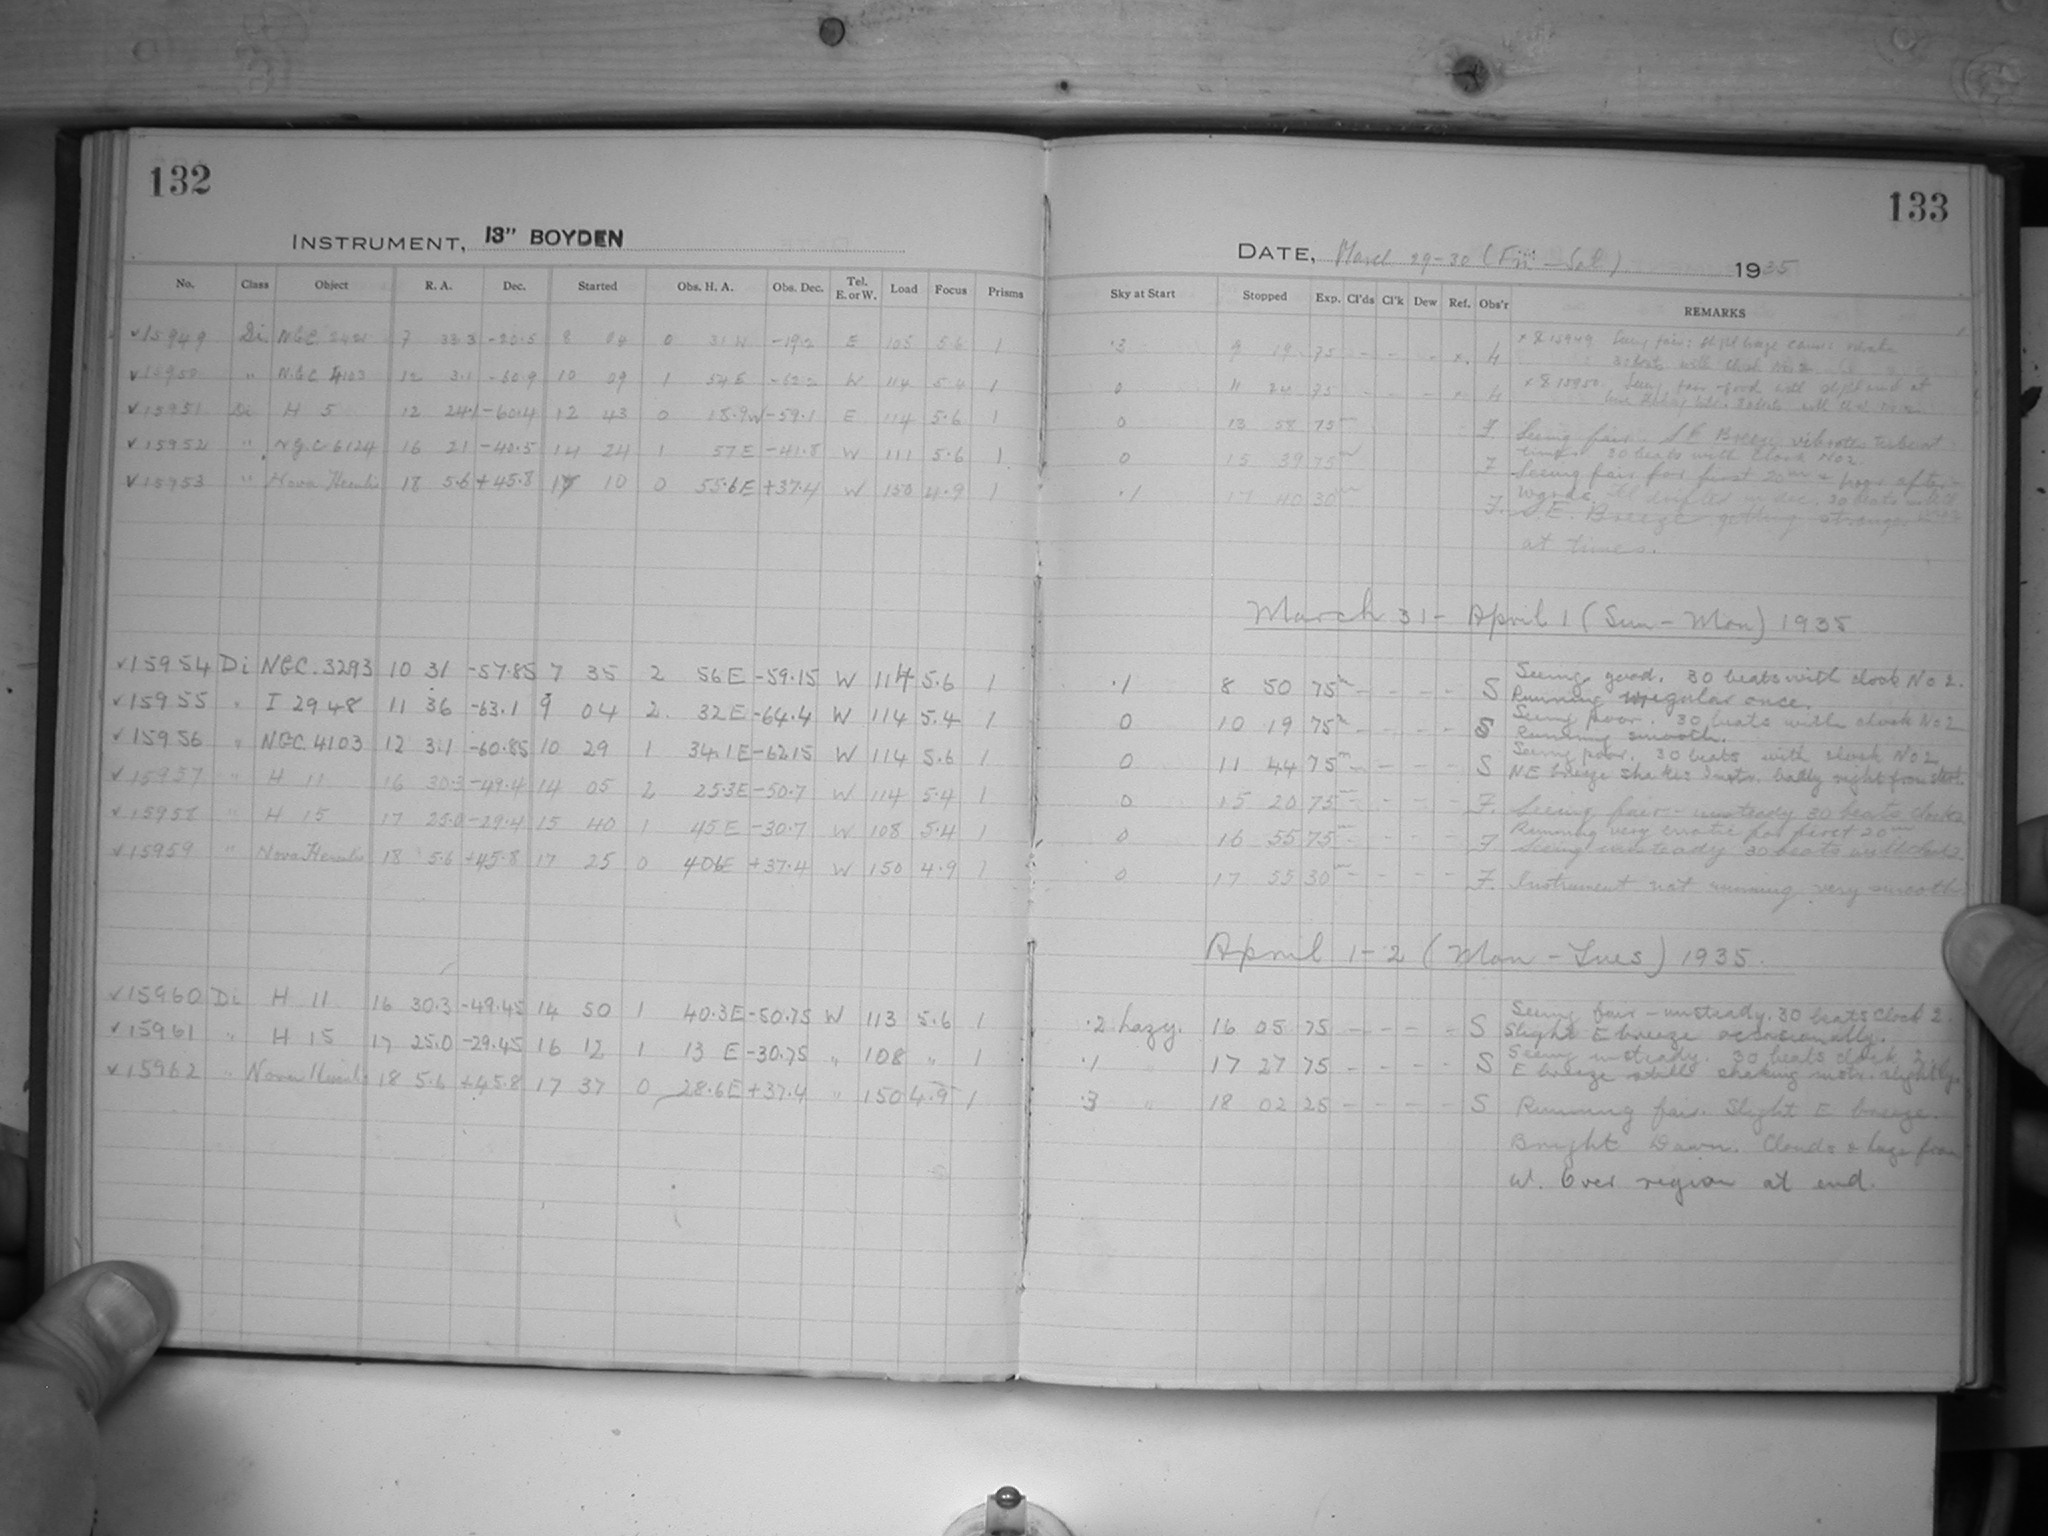 132
INSTRUMENT, 13" BOYDEN
No. Class Object R. A. Dec. Started Obs. H. A. Obs. Dec. Tel. E. or W. Load Focus Prisms
15949 Di NGC 7 33.3 -20.5 8 04 0 31 W -19.2 E 105 5.6 1
15950 " NGC 4103 12 3.1 -60.9 10 09 1 54 E -62.2 W 114 5.6 1
15951 Di H 5 12 24.1 -60.4 12 43 0 18.9W -59.1 E 114 5.6 1
15952 " NGC 6124 16 21 -40.5 14 24 1 57E -41.8 W 111 5.6 1
15953 " Nova Herculis 18 5.6 +45.8 17 10 0 55.6E +37.4 W 150 4.9 1
15954 Di NGC. 3293 10 31 -57.85 7 35 2 56E -59.15 W 114 5.6 1
15955 " I 2948 11 36 -63.1 9 04 2 32E -64.4 W 114 5.4 1
15956 " NGC. 4103 12 3.1 -60.85 10 29 1 34.1E -62.15 W 114 5.6 1
15957 " H 11 16 30.3 -49.4 14 05 2 25.3E -50.7 W 114 5.4 1
15958 " H 15 17 25.0 -29.4 15 40 1 45E -30.7 W 108 5.4 1
15959 " Nova Herculis 18 5.6 +45.8 17 25 0 40.6E +37.4 W 150 4.9 1
15960 Di H 11 16 30.3 -49.45 14 50 1 40.3E -50.75 W 113 5.6 1
15961 " H 15 17 25.0 -29.45 16 12 1 13 E -30.75 " 108 " 1
15962 " Nova Herculis 18 5.6 +45.8 17 37 0 28.6E +37.4 " 150 4.9 1
133
DATE, March 29-30 (Fri - Sat) 1935
Sky at Start Stopped Exp. Cl'ds Cl'k Dew Ref. Obs'r REMARKS
.3 9 19 75 - - - x H x & 15949 Seeing fair;
30 beats with clock No 2
0 11 24 75 - - - x H x & 15950 Seeing fair - good with
0 13 58 75m F. Seeing fair. S E Breeze vibrates tube at
times. 30 beats with Clock No 2.
0 15 39 75m F Seeing fair for first 20m & poor after-
wards. 30 beats with
.1 17 40 30m F. S.E. Breeze getting stronger
at times.
March 31 - April 1 (Sun - Mon) 1935
.1 8 50 75m - - - - S Seeing good. 30 beats with clock No 2.
Running irregular once.
0 10 19 75m - - - - S Seeing poor. 30 beats with clock No 2
Running smooth.
0 11 44 75m - - - - S Seeing poor. 30 beats with clock No 2
NE breeze shakes Instr. badly right from start.
0 15 20 75m - - - - F. Seeing fair - unsteady 30 beats Clock 2
Running very erratic for first 20m
0 16 55 75m - - - - F Seeing unsteady 30 beats with clock 2.
0 17 55 30m - - - - F. Instrument not running very smooth
April 1-2 (Mon - Tues) 1935.
.2 hazy. 16 05 75 - - - - S Seeing fair - unsteady. 30 beats Clock 2.
Slight E breeze occasionally.
.1 " 17 27 75 - - - - S Seeing unsteady. 30 beats clock 2.
E breeze still shaking instr. slightly.
.3 " 18 02 25 - - - - S Running fair. Slight E breeze.
Bright Dawn. Clouds & haze from
W. Over region at end.